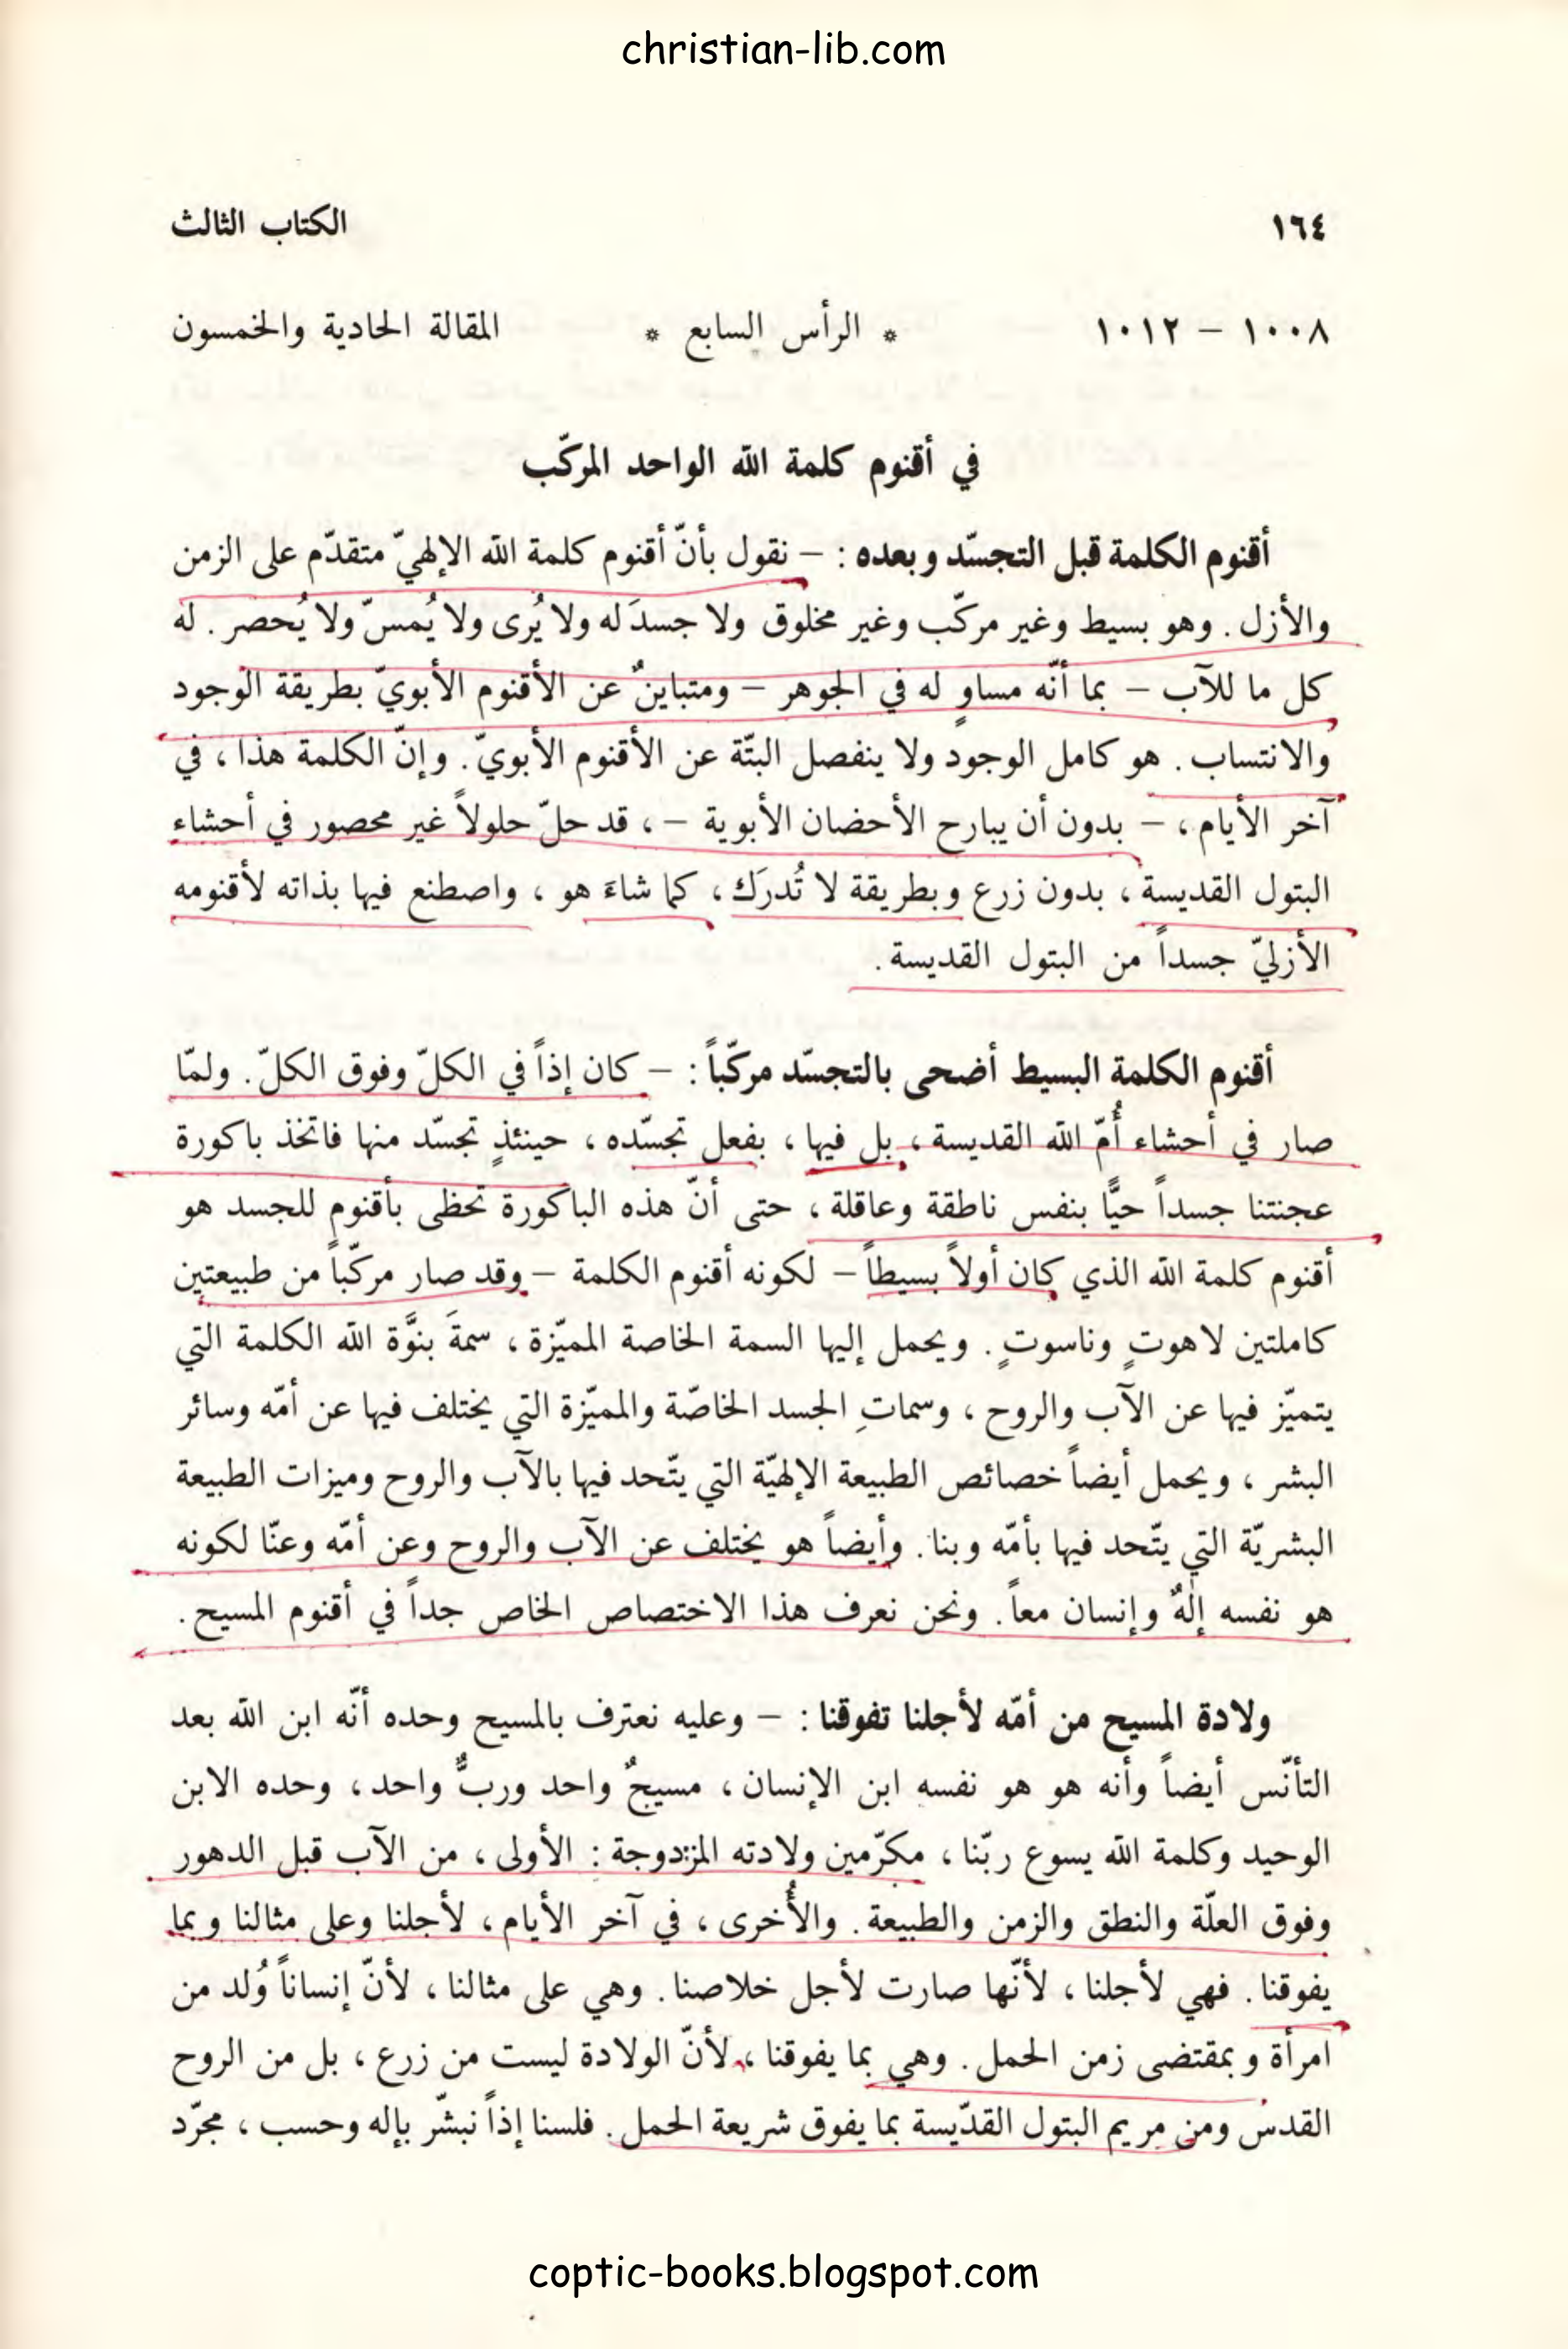 christian-lib.com
١٦٤ الكتاب الثالث
١٠٠٨ – ١٠١٢ * الرأس السابع * المقالة الحادية والخمسون
في أقنوم كلمة الله الواحد المركّب
أقنوم الكلمة قبل التجسّد وبعده : – نقول بأنّ أقنوم كلمة الله الإلهيّ متقدّم على الزمن
والأزل . وهو بسيط وغير مركّب وغير مخلوق ولا جسدَ له ولا يُرى ولا يُمسّ ولا يُحصر . له
كل ما للآب – بما أنّه مساوٍ له في الجوهر – ومتباينٌ عن الأقنوم الأبويّ بطريقة الوجود
والانتساب . هو كامل الوجود ولا ينفصل البتّة عن الأقنوم الأبويّ . وإنّ الكلمة هذا ، في
آخر الأيام ، – بدون أن يبارح الأحضان الأبوية – ، قد حلّ حلولاً غير محصور في أحشاء
البتول القديسة ، بدون زرع وبطريقة لا تُدرَك ، كما شاءَ هو ، واصطنع فيها بذاته لأقنومه
الأزليّ جسداً من البتول القديسة .
أقنوم الكلمة البسيط أضحى بالتجسّد مركّباً : – كان إذاً في الكلّ وفوق الكلّ . ولمّا
صار في أحشاء أُمّ الله القديسة ، بل فيها ، بفعل تجسّده ، حينئذٍ تجسّد منها فاتخذ باكورة
عجنتنا جسداً حيًّا بنفس ناطقة وعاقلة ، حتى أنّ هذه الباكورة تحظى بأقنوم للجسد هو
أقنوم كلمة الله الذي كان أولاً بسيطاً – لكونه أقنوم الكلمة – وقد صار مركّباً من طبيعتين
كاملتين لاهوتٍ وناسوتٍ . ويحمل إليها السمة الخاصة المميّزة ، سمةَ بنوَّة الله الكلمة التي
يتميّز فيها عن الآب والروح ، وسماتِ الجسد الخاصّة والمميّزة التي يختلف فيها عن أمّه وسائر
البشر ، ويحمل أيضاً خصائص الطبيعة الإلهيّة التي يتّحد فيها بالآب والروح وميزات الطبيعة
البشريّة التي يتّحد فيها بأمّه وبنا . وأيضاً هو يختلف عن الآب والروح وعن أمّه وعنّا لكونه
هو نفسه إلهٌ وإنسان معاً . ونحن نعرف هذا الاختصاص الخاص جداً في أقنوم المسيح .
ولادة المسيح من أمّه لأجلنا تفوقنا : – وعليه نعترف بالمسيح وحده أنّه ابن الله بعد
التأنّس أيضاً وأنه هو هو نفسه ابن الإنسان ، مسيحٌ واحد وربٌّ واحد ، وحده الابن
الوحيد وكلمة الله يسوع ربّنا ، مكرّمين ولادته المزدوجة : الأولى ، من الآب قبل الدهور
وفوق العلّة والنطق والزمن والطبيعة . والأُخرى ، في آخر الأيام ، لأجلنا وعلى مثالنا وبما
يفوقنا . فهي لأجلنا ، لأنّها صارت لأجل خلاصنا . وهي على مثالنا ، لأنّ إنساناً وُلد من
امرأة وبمقتضى زمن الحمل . وهي بما يفوقنا ، لأنّ الولادة ليست من زرع ، بل من الروح
القدس ومن مريم البتول القدّيسة بما يفوق شريعة الحمل . فلسنا إذاً نبشّر بإله وحسب ، مجرّد
coptic-books.blogspot.com